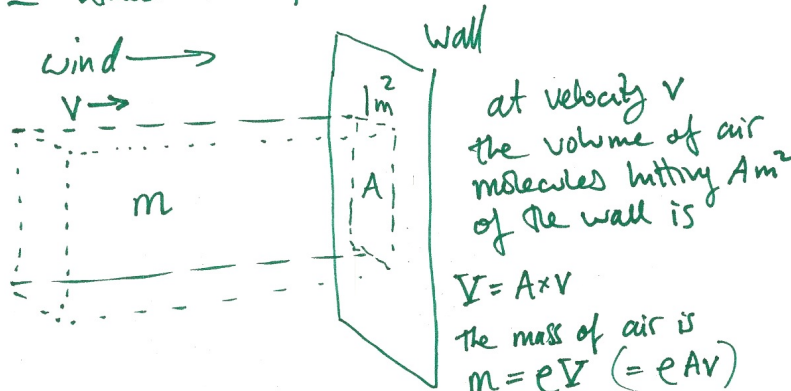 wind →
V →
1m²
m
A
wall
at velocity v
the volume of air
molecules hitting Am²
of the wall is
V = A×v
the mass of air is
m = ρV (= ρAv)